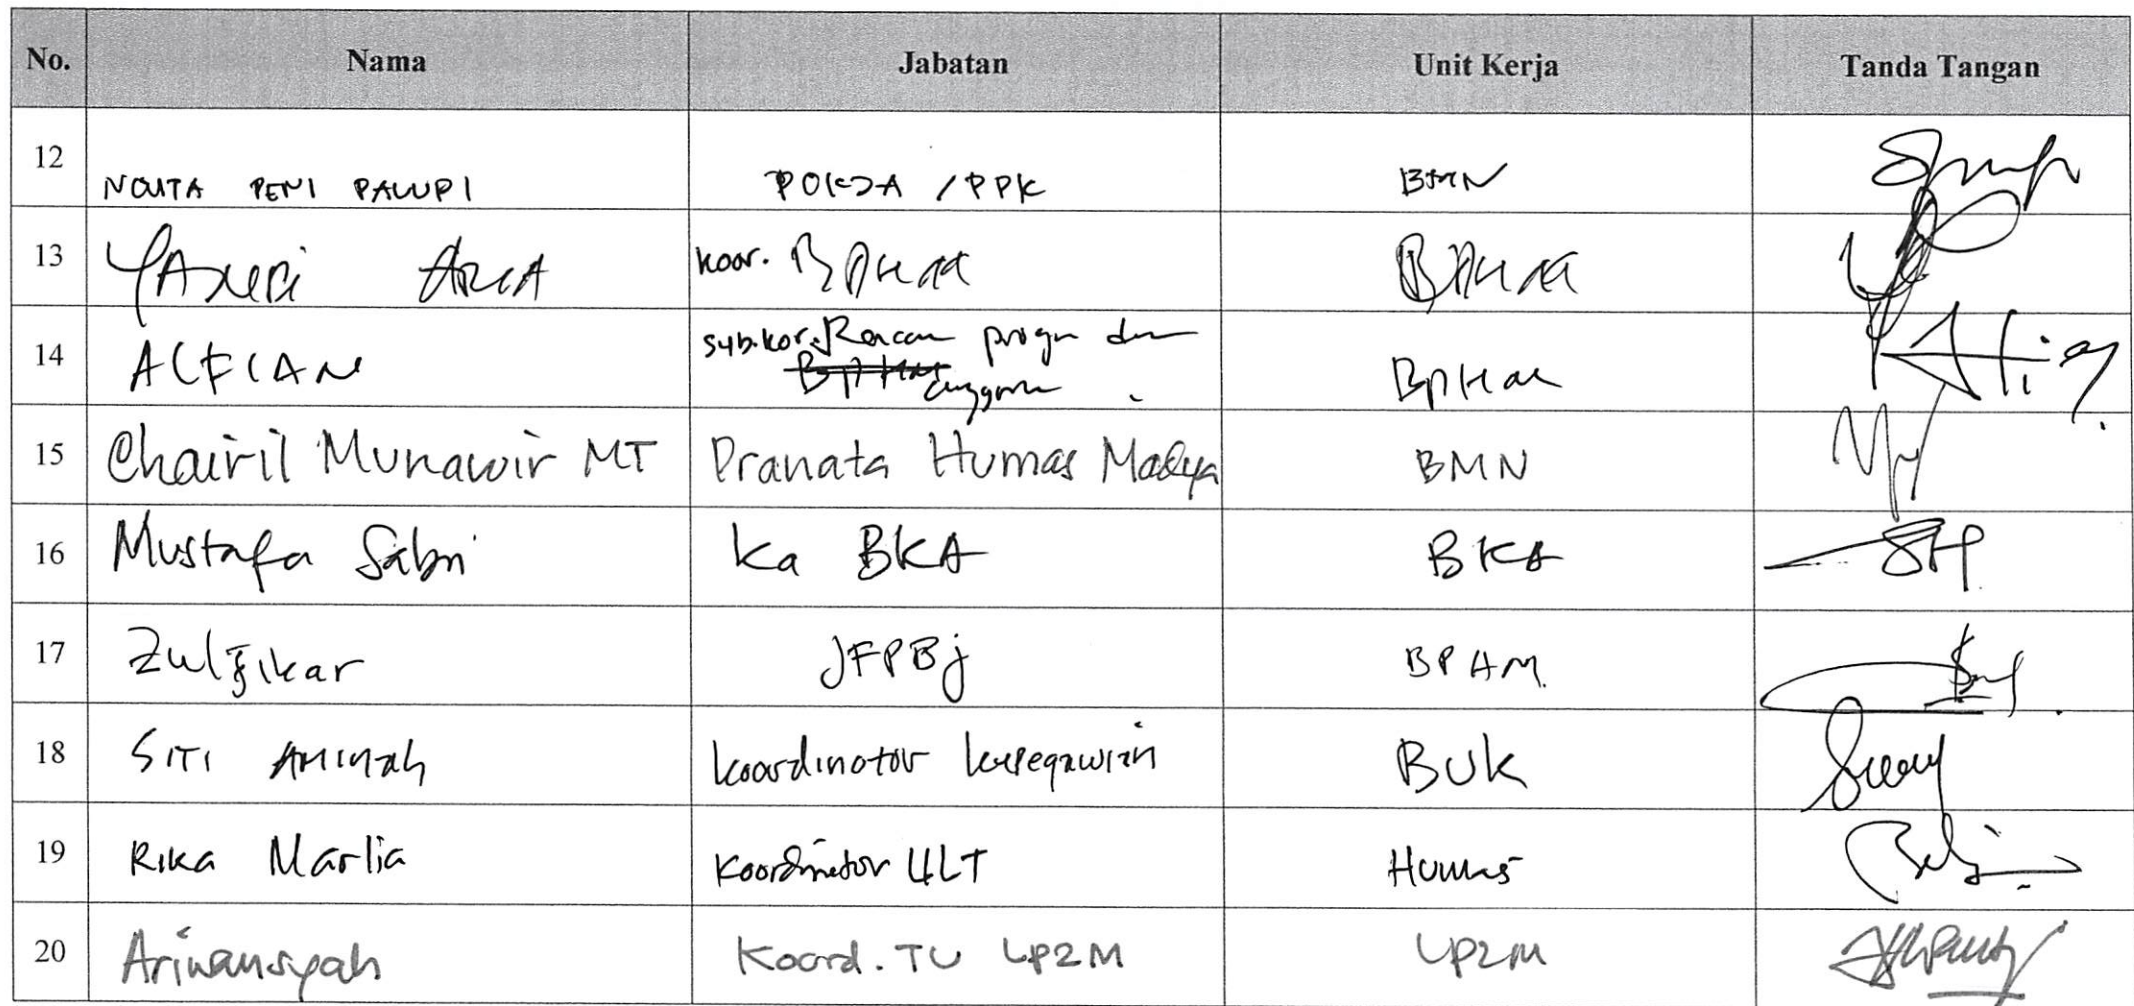 No. Nama Jabatan Unit Kerja Tanda Tangan
12 NOVITA PENI PALUPI POKJA / PPK BMN
13 koor. BPHM BPHM
14 ALFIAN sub.kor. Rencan progr dan anggaran BPHM
15 Chairil Munawir MT Pranata Humas Madya BMN
16 Mustafa Sabri Ka BKA BKA
17 Zulfikar JFPBj BPHM
18 SITI AMINAh Koordinator kepegawaian BUK
19 RIKA Marlia Koordinator ULT Humas
20 Ariwansyah Koord. TU LP2M LP2M